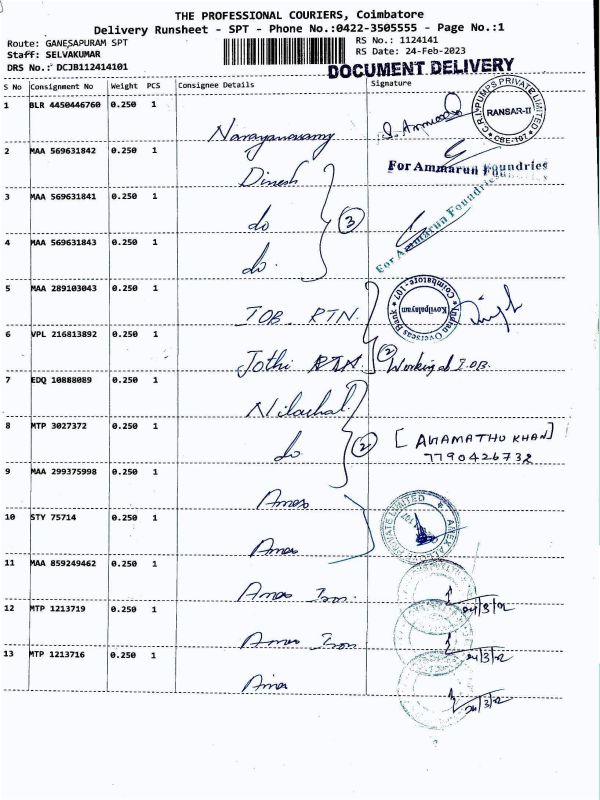 THE PROFESSIONAL COURIERS, Coimbatore
Delivery Runsheet - SPT - Phone No.:0422-3505555 - Page No.:1
Route: GANESAPURAM SPT
RS No.: 1124141
Staff: SELVAKUMAR
RS Date: 24-Feb-2023
DRS No.: DCJB112414101
DOCUMENT DELIVERY
S No Consignment No Weight PCS Consignee Details Signature
1 BLR 4450446760 0.250 1
Narayanasamy
C.R.I. PUMPS PRIVATE LIMITED
RANSAR-II
CBE-107
2 MAA 569631842 0.250 1
Dinesh
For Ammarun Foundries
3 MAA 569631841 0.250 1
do
3
For Ammarun Foundries
4 MAA 569631843 0.250 1
do.
5 MAA 289103043 0.250 1
IOB. RTN.
Indian Overseas Bank
Kovilpalayam
Coimbatore-107
6 VPL 216813892 0.250 1
Jothi
2 Working at I.O.B.
7 EDQ 10888089 0.250 1
Nilachal
8 MTP 3027372 0.250 1
do
2
[AHAMATHU KHAN]
7790426732
9 MAA 299375998 0.250 1
Amex
10 STY 75714 0.250 1
Amex
PRIVATE LIMITED
11 MAA 859249462 0.250 1
Amex Iron.
12 MTP 1213719 0.250 1
Amex Iron
13 MTP 1213716 0.250 1